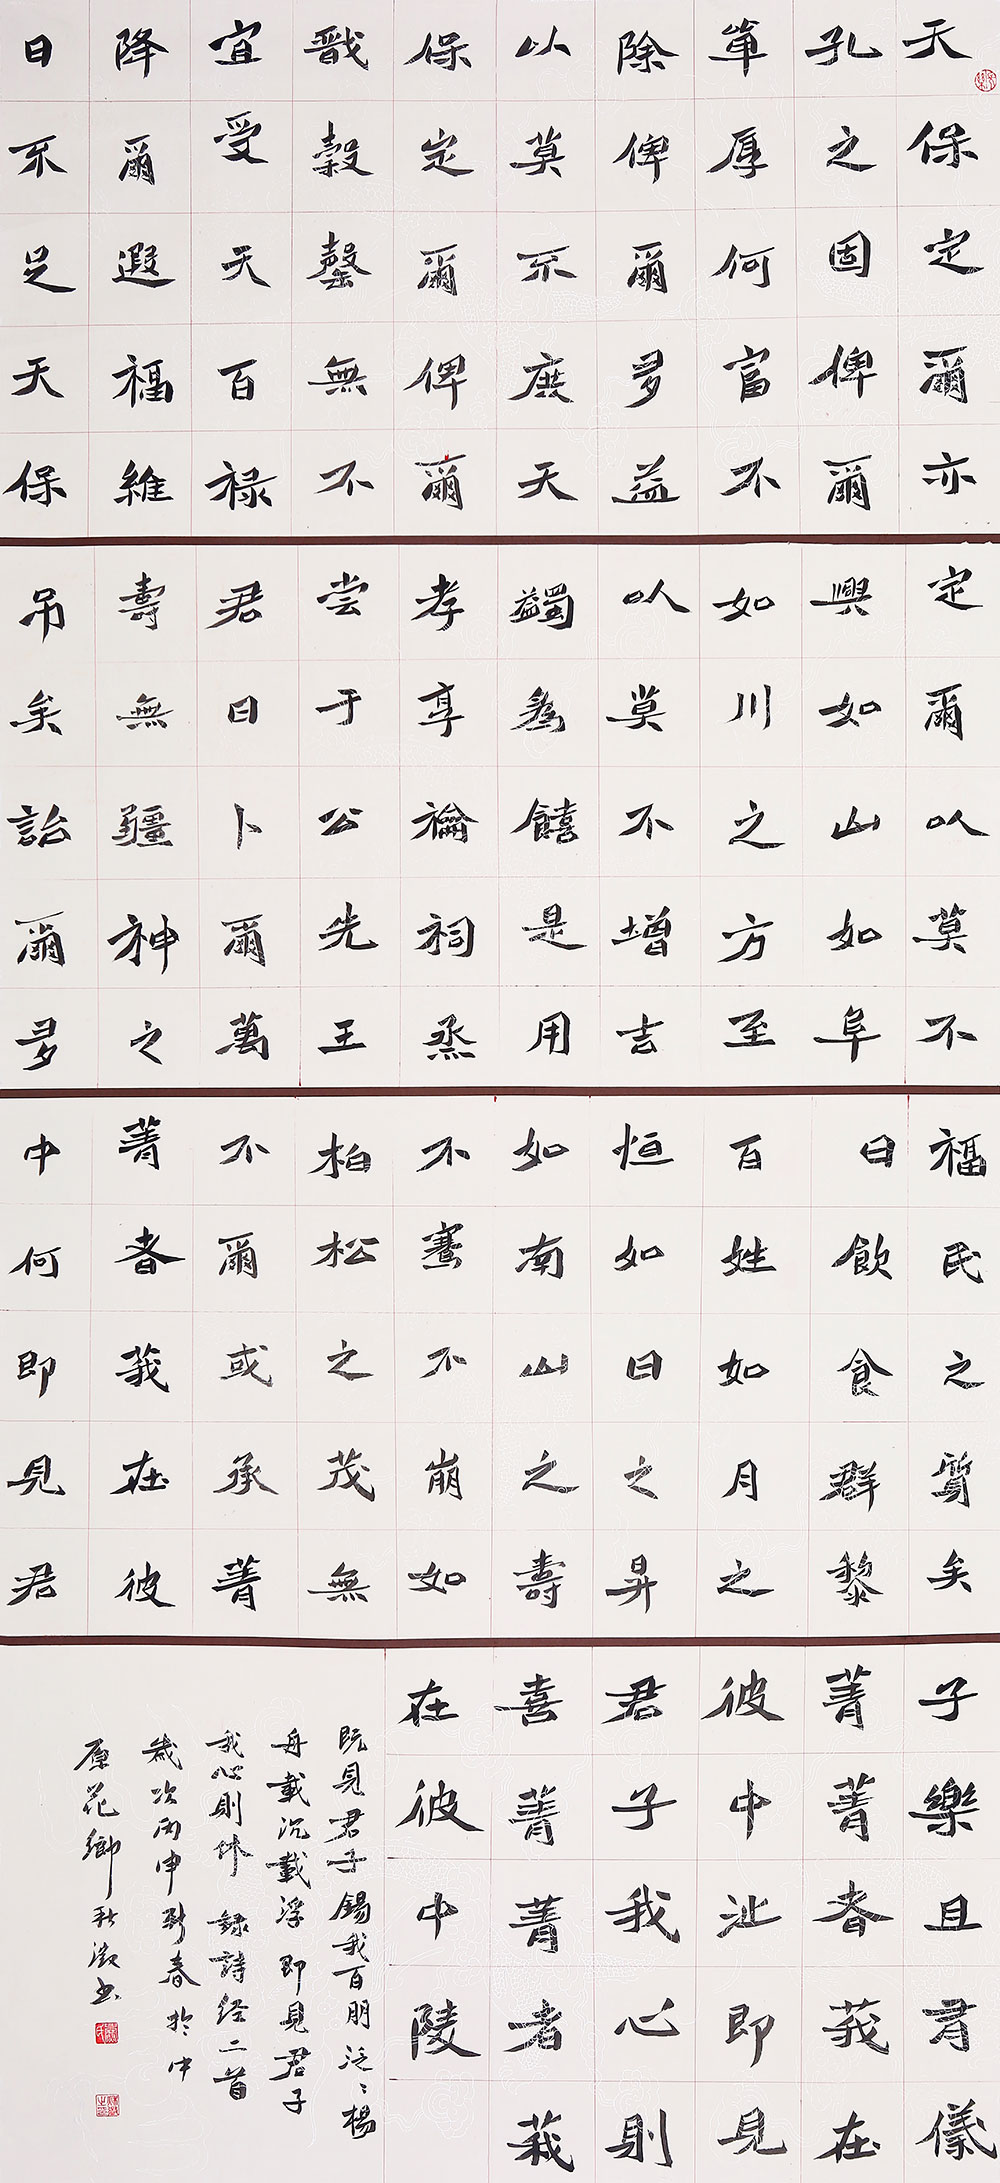 天保定爾亦
孔之固俾爾
單厚何富不
除俾爾多益
以莫不庶天
保定爾俾爾
戩穀罄無不
宜受天百禄
降爾遐福維
日不足天保
定爾以莫不
興如山如阜
如川之方至
以莫不增吉
蠲為饎是用
孝享禴祠烝
嘗于公先王
君曰卜爾萬
壽無疆神之
吊矣詒爾多
福民之質矣
日飲食群黎
百姓如月之
恒如日之昇
如南山之壽
不騫不崩如
柏松之茂無
不爾或承菁
菁者莪在彼
中何即見君
子樂且有儀
菁菁者莪在
彼中沚即見
君子我心則
喜菁菁者莪
在彼中陵
既見君子錫我百朋泛〻楊
舟載沉載浮即見君子
我心則休 録詩经二首
歲次丙申新春於中
原花鄉秋書